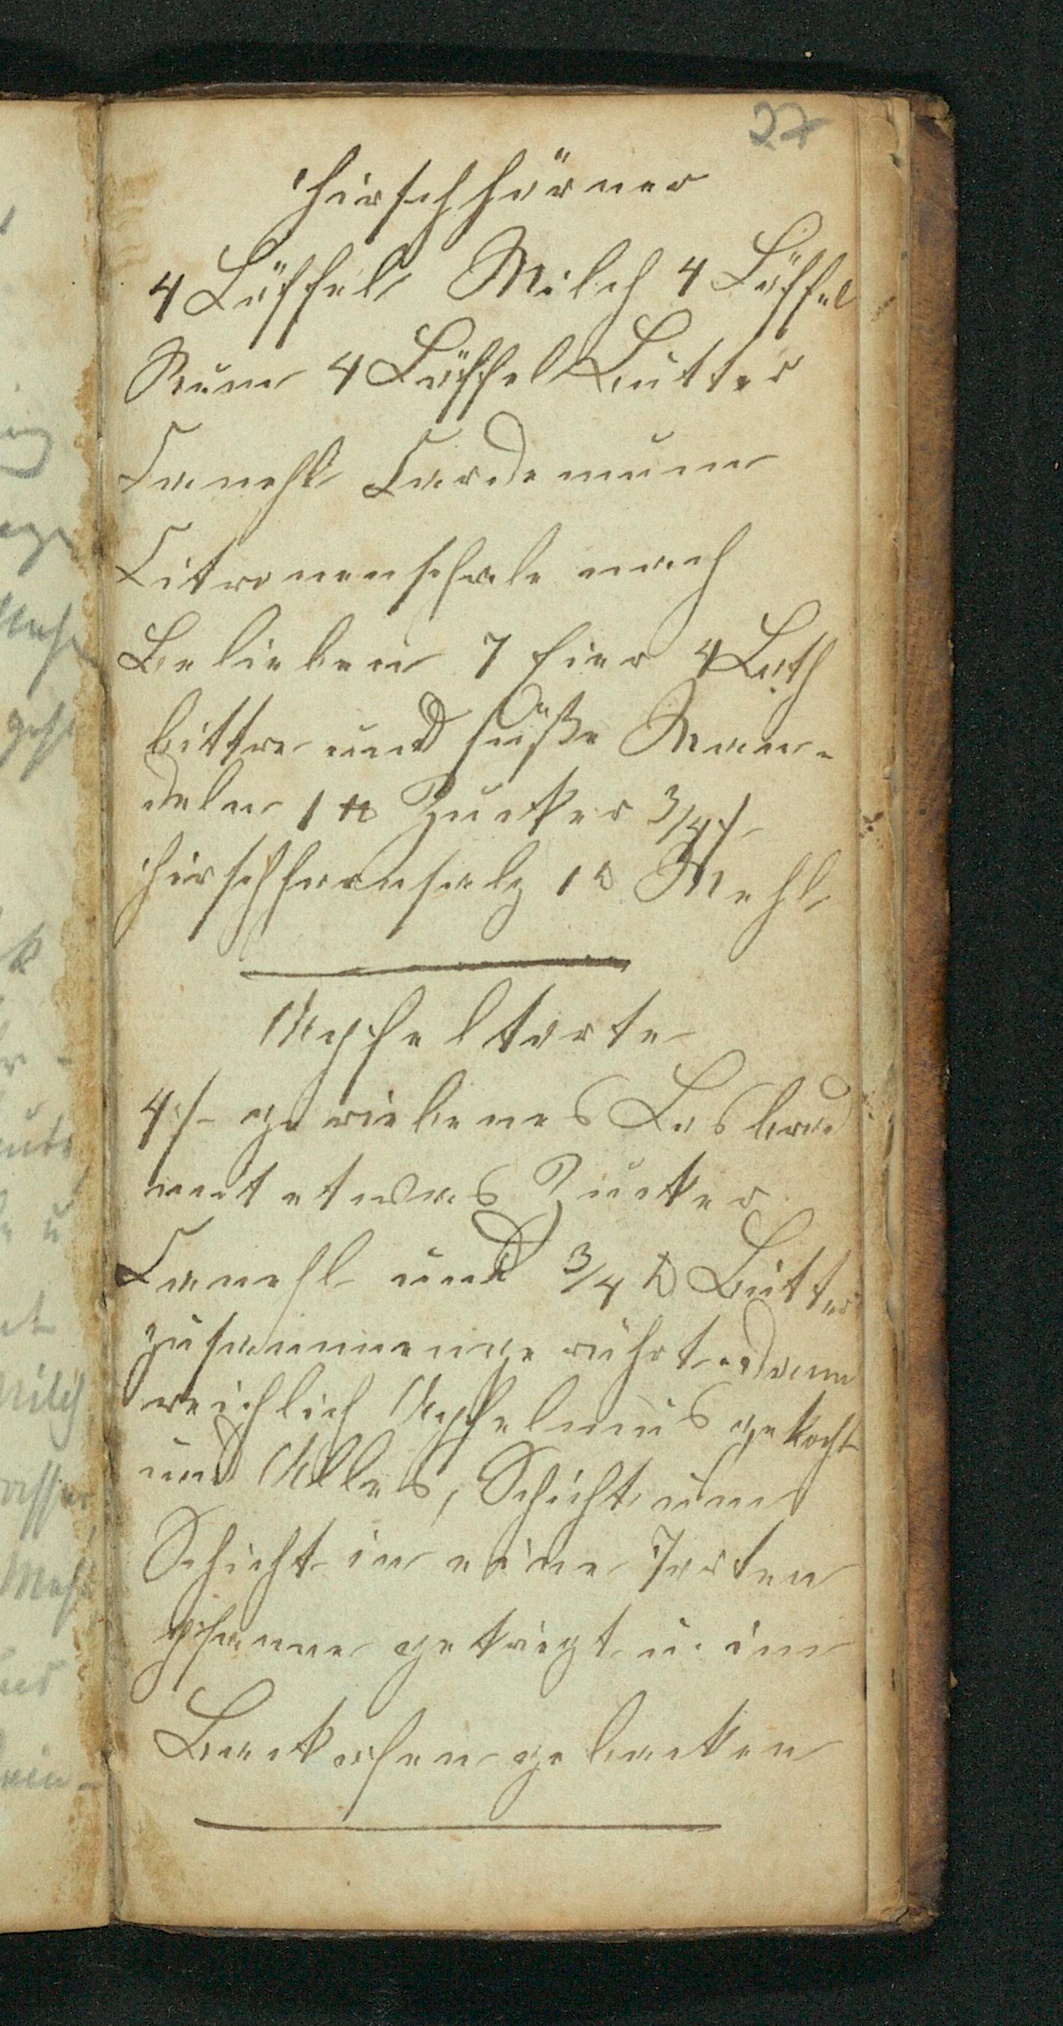 27
Hirschhörner
4 Löffel Milch 4 Löffel
Rum 4 Löffel Butter
Canehl Cardemum
Citronenschale nach
Belieben 7 Eier 4 Loth
bittre und süße Man-
deln 1 ℔ Zucker 3/4 ß
Hirschhornsalz 1 ℔ Mehl
Apfeltorte
4 ß geriebenes Losbrod
mit etwas Zucker
Canehl und 3/4 ℔ Butter
zusammengerührt dann
reichlich Apfelmus gekocht
und Alles, Schicht um
Schicht in eine Torten
pfanne gelegt u. im
Backofen gebacken